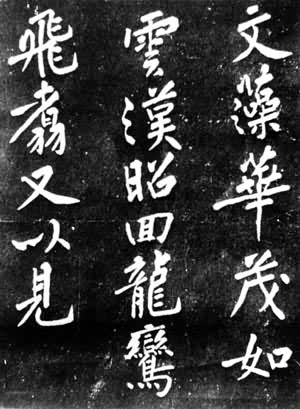 文藻華茂如
雲漢昭回龍鸞
飛翥又以見